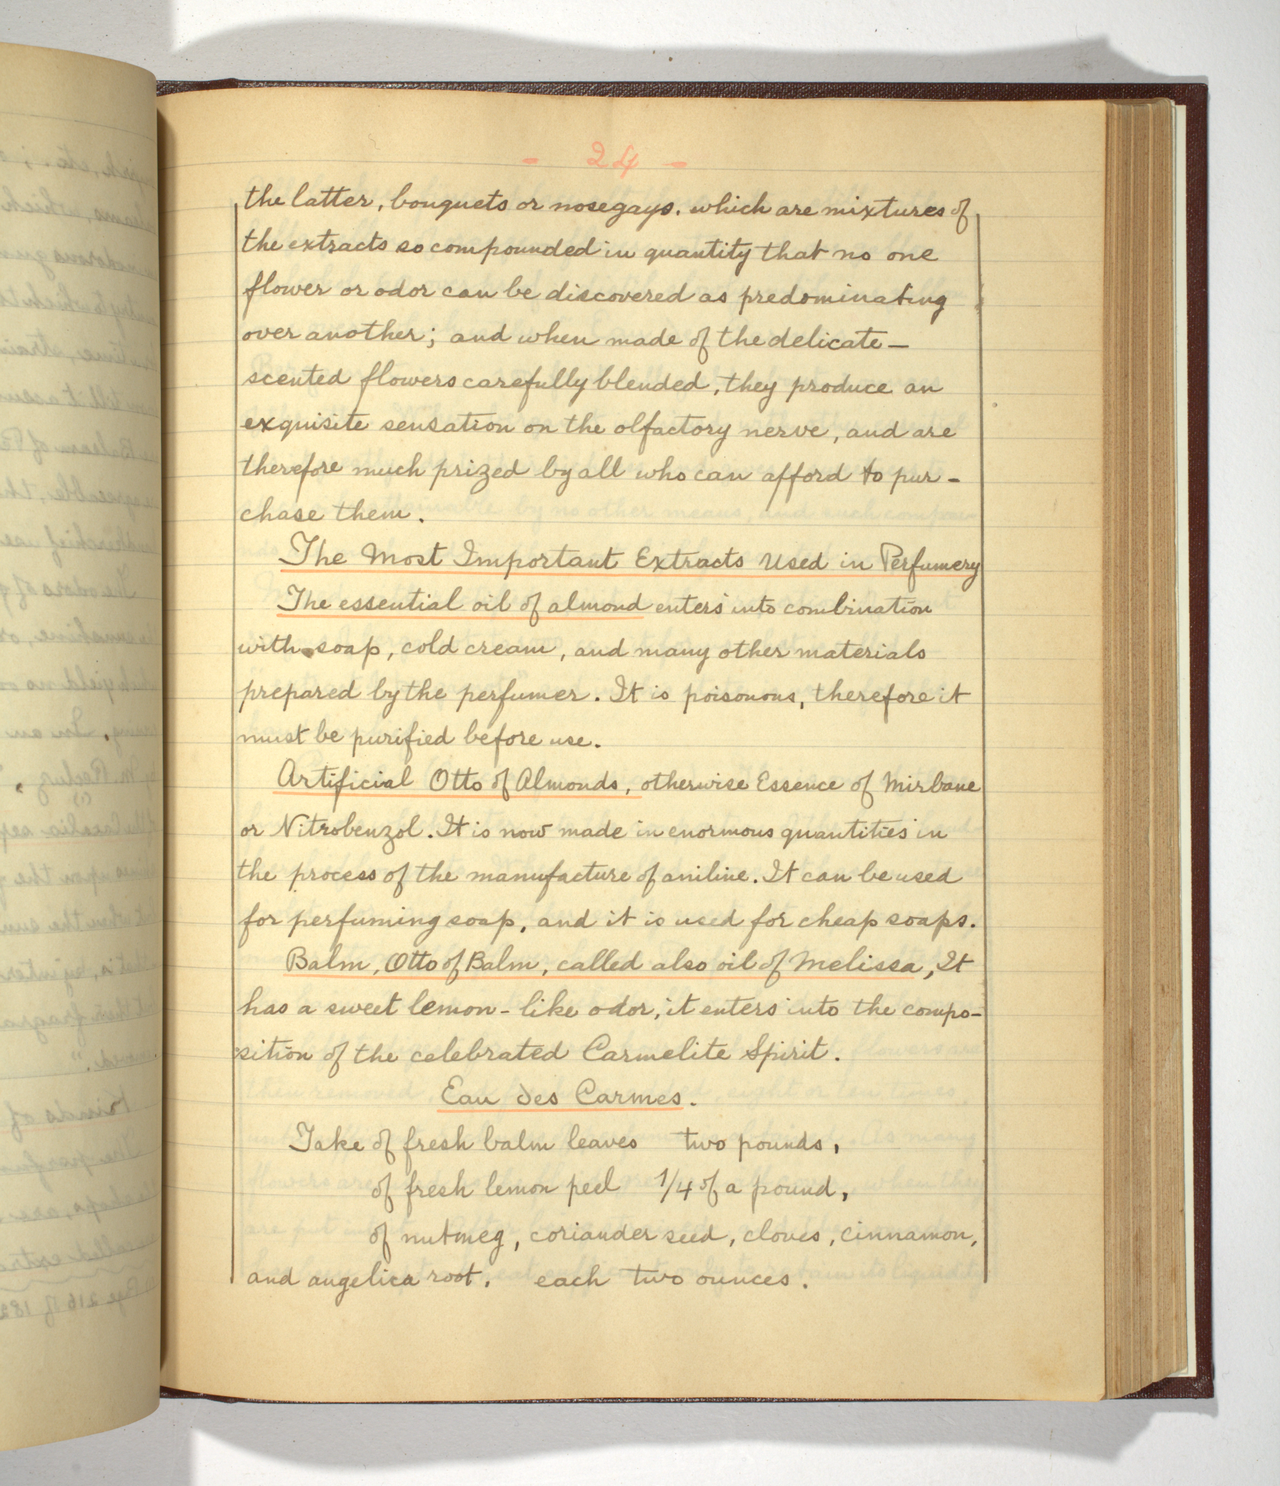 - 24 -
the latter, bouquets or nosegays, which are mixtures of
the extracts so compounded in quantity that no one
flower or odor can be discovered as predominating
over another; and when made of the delicate-
scented flowers carefully blended, they produce an
exquisite sensation on the olfactory nerve, and are
therefore much prized by all who can afford to pur-
chase them.
The Most Important Extracts Used in Perfumery
The essential oil of almond enters into combination
with soap, cold cream, and many other materials
prepared by the perfumer. It is poisonous, therefore it
must be purified before use.
Artificial Otto of Almonds, otherwise Essence of Mirbane
or Nitrobenzol. It is now made in enormous quantities in
the process of the manufacture of aniline. It can be used
for perfuming soap, and it is used for cheap soaps.
Balm, Otto of Balm, called also oil of Melissa, It
has a sweet lemon-like odor; it enters into the compo-
sition of the celebrated Carmelite Spirit.
Eau des Carmes.
Take of fresh balm leaves two pounds,
of fresh lemon peel 1/4 of a pound,
of nutmeg, coriander seed, cloves, cinnamon,
and angelica root, each two ounces.